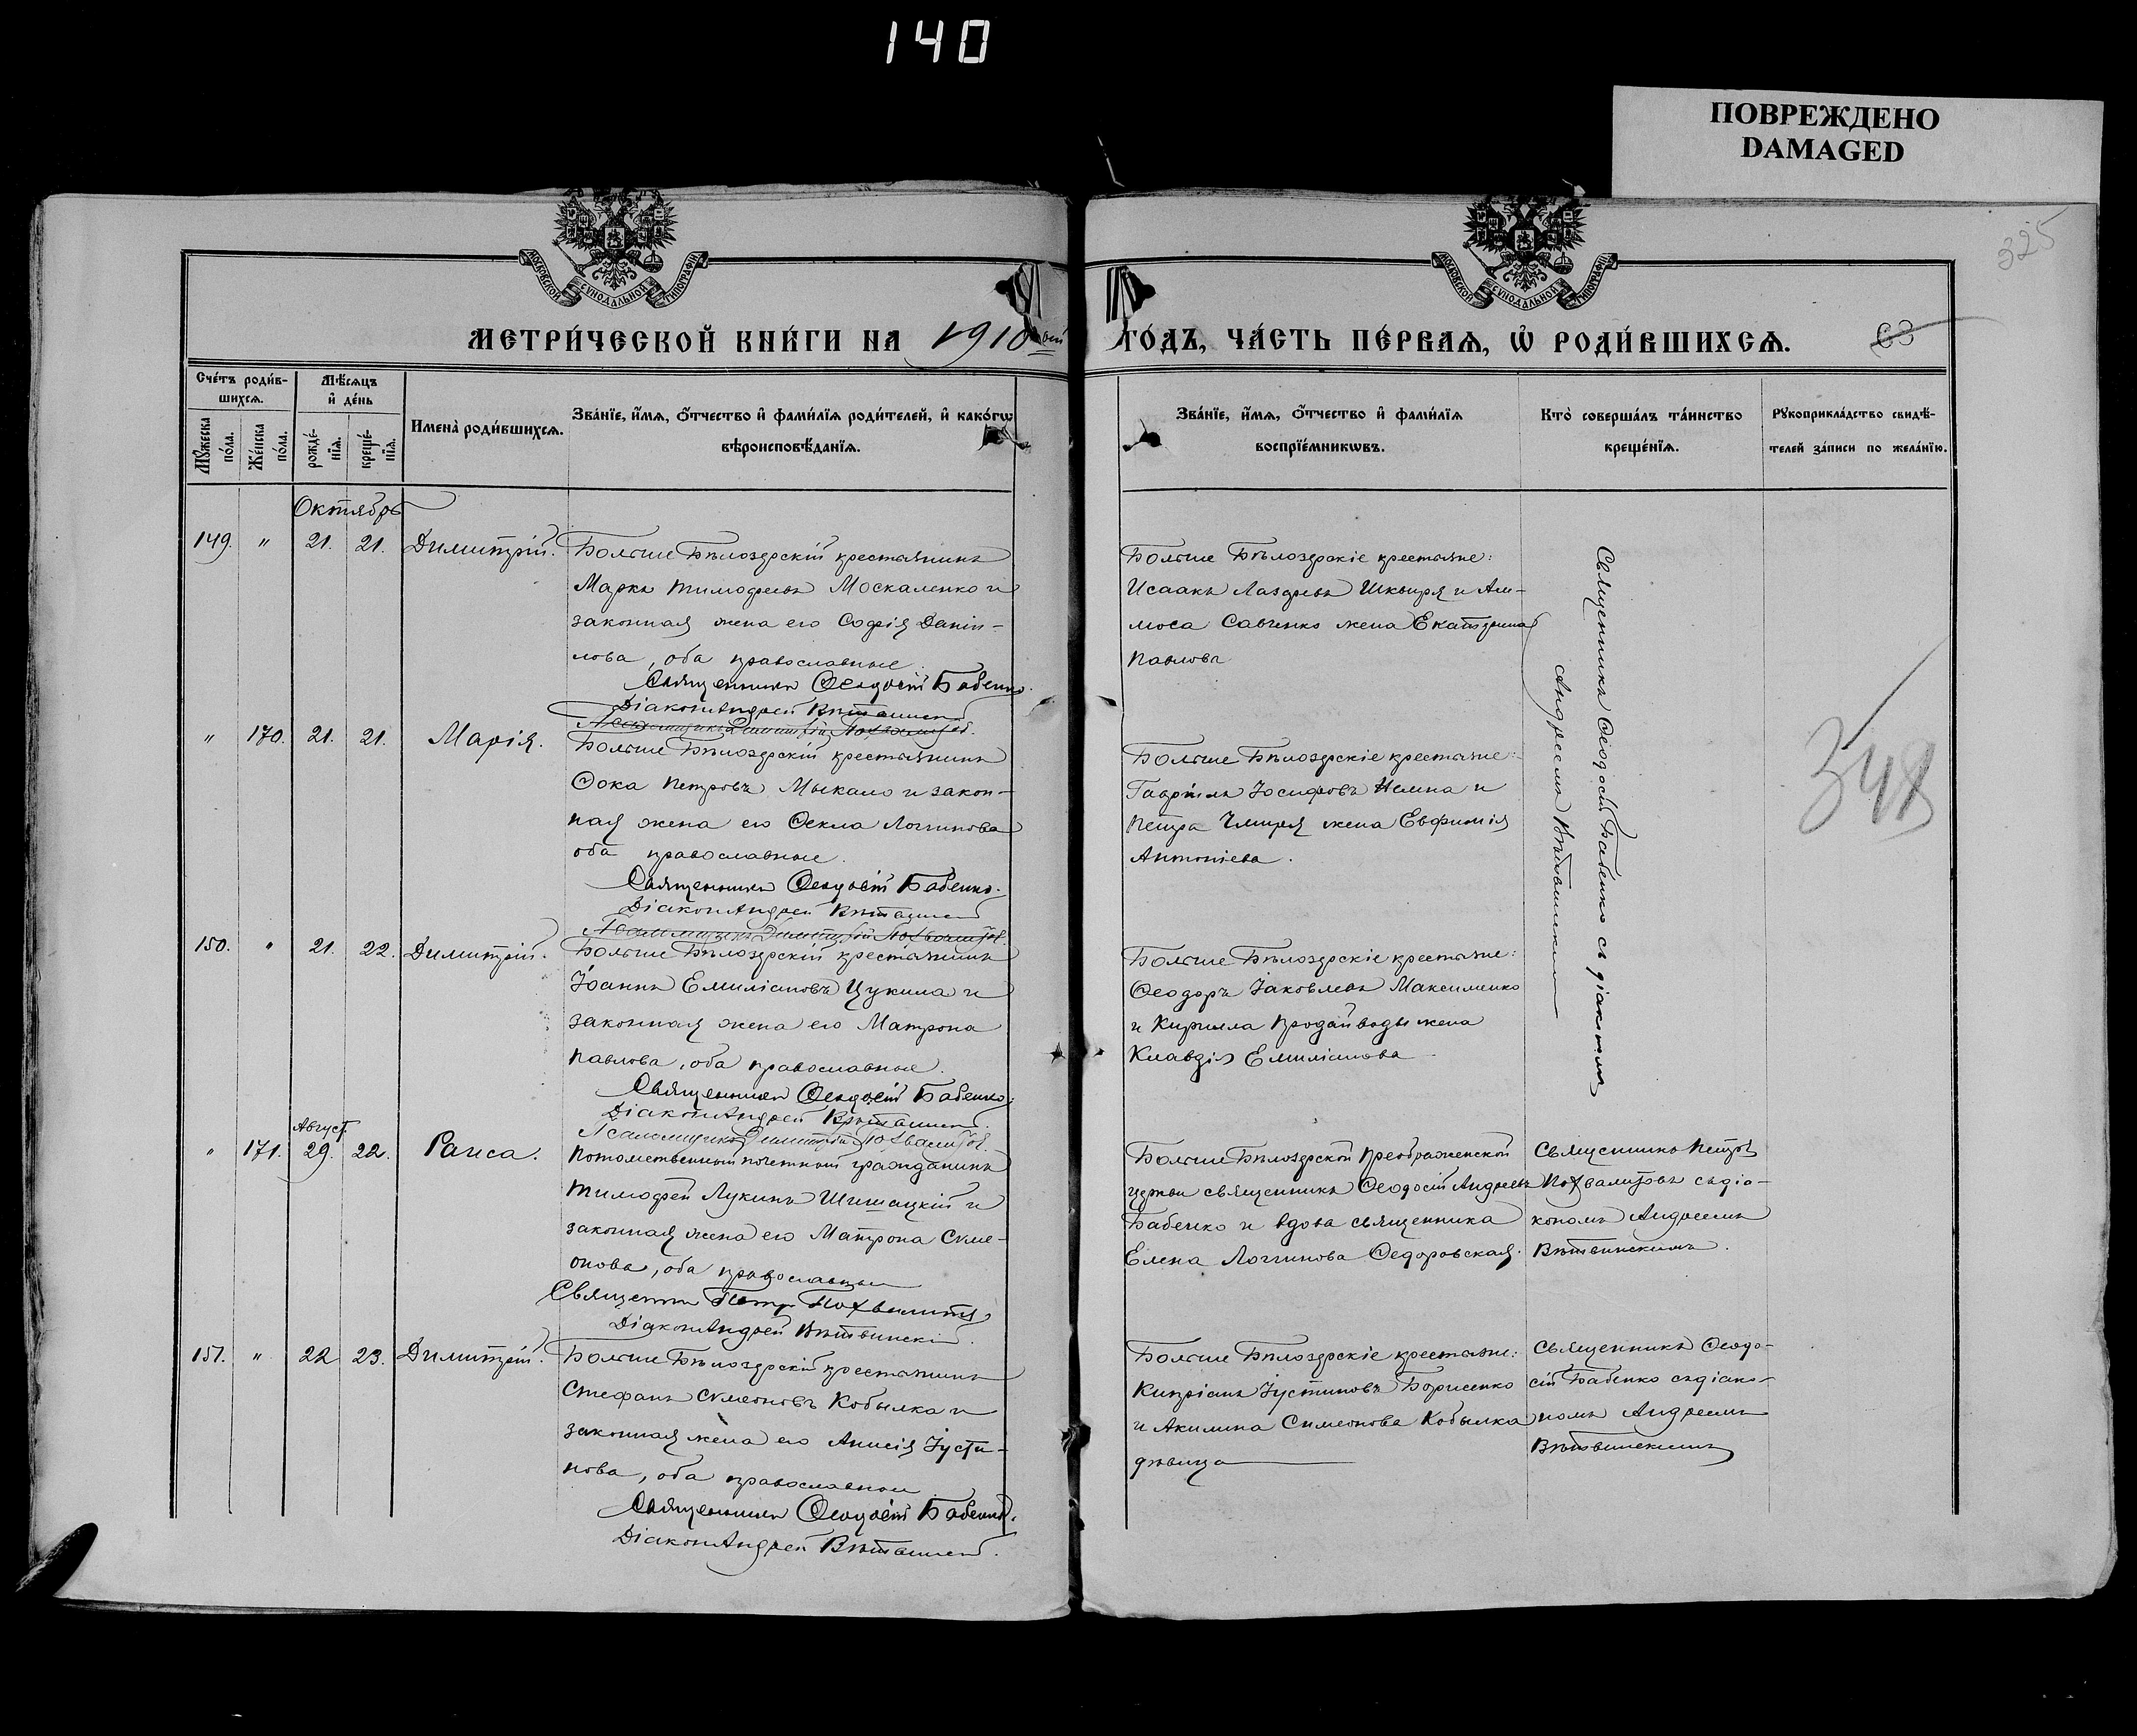 140
ПОВРЕЖДЕНО
DAMAGED
325
МОСКОВСКОЙ СѴНОДАЛЬНОЙ ТИПОГРАФІИ
МОСКОВСКОЙ СѴНОДАЛЬНОЙ ТИПОГРАФІИ
МЕТРИ́ЧЕСКОЙ КНИ́ГИ НА 1910ый
ГО́ДЪ, ЧА́СТЬ ПЕ́РВАѦ, Ѽ РОДИ́ВШИХСѦ.
63
Счетъ роди́в-
шихсѧ.
Мꙋжеска по́ла.
Же́нска по́ла.
Мѣ́сѧцъ
и҆ де́нь
рожде́-
нїѧ.
креще́-
нїѧ.
И҆мена̀ роди́вшихсѧ.
Зва́нїе, и҆́мѧ, ѻ҆́тчество и҆ фами́лїѧ роди́телей, и҆ како́гѡ
вѣроисповѣ́данїѧ.
Зва́нїе, и҆́мѧ, ѻ҆́тчество и҆ фами́лїѧ
воспрїе́мникѡвъ.
Кто̀ соверша́лъ та́инство
креще́нїѧ.
Рꙋкоприкла́дство свидѣ́-
телей за́писи по жела́нїю.
Октябрь
149. " 21. 21. Димитрій.
Больше Бѣлозерскій крестьянинъ
Маркъ Тимофеевъ Москаленко и
законная жена его Софія Даніи-
лова, оба православные.
Священникъ Ѳеодосій Бабенко.
Діаконъ Андрей Вѣтвинскій
Псаломщикъ Димитрій Похвалитов.
Больше Бѣлозерскіе крестьяне:
Исаакъ Лазаревъ Шквиря и Ам-
моса Савченко жена Екатерина
Павлова
Священникъ Ѳеодосій Бабенко съ діакономъ
Андреемъ Вѣтвинскимъ
" 170. 21. 21. Марія.
Больше Бѣлозерскій крестьянинъ
Фока Петровъ Мыкало и закон-
ная жена его Ѳекла Логгинова
оба православные.
Священникъ Ѳеодосій Бабенко.
Діаконъ Андрей Вѣтвинскій
Псаломщикъ Димитрій Похвалитов.
Больше Бѣлозерскіе крестьяне:
Гавріилъ Іосифовъ и
Петра жена Евфимія
Антоніева.
348
150. " 21. 22. Димитрій.
Больше Бѣлозерскій крестьянинъ
Іоаннъ Емиліановъ Цукила и
законная жена его Матрона
Павлова, оба православные.
Священникъ Ѳеодосій Бабенко.
Діаконъ Андрей Вѣтвинскій.
Псаломщикъ Димитрій Похвалитов.
Больше Бѣлозерскіе крестьяне:
Ѳеодоръ Іаковлевъ Максименко
и Кирилла Продайводы жена
Клавдія Емиліанова
Август.
" 171. 29. 22. Раиса.
Потомственный почетный гражданинъ
Тимофей Лукинъ Шишацкій и
законная жена его Матрона Симе-
онова, оба православные
Священникъ Петръ Похвалитовъ
Діаконъ Андрей Вѣтвинскій.
Больше Бѣлозерской Преображенской
церкви священникъ Ѳеодосій Андреевъ
Бабенко и вдова священника
Елена Логгинова Ѳедоровская.
Священникъ Петръ
Похвалитовъ съ діа-
кономъ Андреемъ
Вѣтвинскимъ.
151. " 22 23. Димитрій.
Больше Бѣлозерскій крестьянинъ
Стефанъ Симеоновъ Кобылка и
законная жена его Анисія Іусти-
нова, оба православные
Священникъ Ѳеодосій Бабенко.
Діаконъ Андрей Вѣтвинскій.
Больше Бѣлозерскіе крестьяне:
Кипріанъ Іустиновъ Борисенко
и Акилина Симеонова Кобылка
дѣвица
Священникъ Ѳеодо-
сій Бабенко съ діако-
номъ Андреемъ
Вѣтвинскимъ